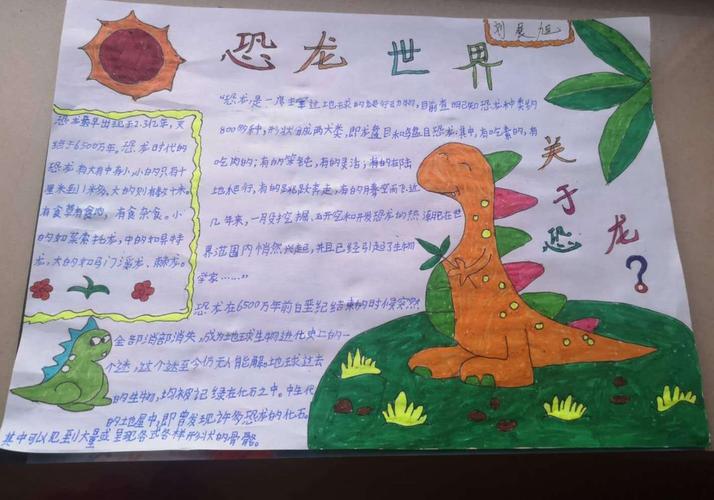 恐龙世界
关于恐龙?
恐龙最早出现于2.3亿年,灭
绝于6500万年。恐龙时代的
恐龙有大有中有小,小的只有十
厘米到1米多,大的则有数十米。
有食草有食肉,有食杂食。小
的如莱索托龙,中的如异特
龙,大的如马门溪龙、棘龙。
"恐龙是一度主宰过地球的 动物,目前查明的恐龙种类约
800多种,形状分成两大类,即龙盘目和鸟盘目恐龙。其中,有吃素的,有
吃肉的;有的笨钝,有的灵活;有的在陆
地爬行,有的跳跃奔走,有的腾空而飞近
几年来,一股挖掘、研究和开发恐龙的热潮已在世
界范围内悄然兴起,并且已经引起了生物
学家……"
恐龙在6500万年前白垩纪结束的时候突然
全部消部消失,成为地球生物进化史上的一
个谜,这个谜至今仍无人能解。地球过去
的生物,均被记绿在化石之中。中生代
的地屋中,即曾发现许多恐龙的化石。
其中可以见到大量或呈现各式各样形状的骨骼。